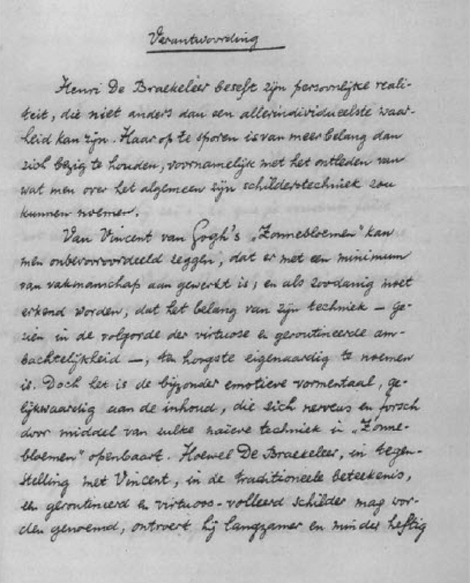 Verantwoording
Henri De Braekeleer beseft zijn persoonlijke reali-
teit, die niet anders dan een allerindividueelste waar-
heid kan zijn. Haar op te sporen is van meer belang dan
zich bezig te houden, voornamelijk met het ontleden van
wat men over het algemeen zijn schilderstechniek zou
kunnen noemen.
Van Vincent van Gogh's „Zonnebloemen" kan
men onbevooroordeeld zeggen, dat er met een minimum
van vakmanschap aan gewerkt is; en als zoodanig moet
erkend worden, dat het belang van zijn techniek — ge-
zien in de volgorde der virtuose en geroutineerde am-
bachtelijkheid —, ten hoogste eigenaardig te noemen
is. Doch het is de bijzonder emotieve vormentaal, ge-
lijkwaardig aan de inhoud, die zich nerveus en forsch
door middel van zulke naïeve techniek in „Zonne-
bloemen" openbaart. Hoewel De Braekeleer, in tegen-
stelling met Vincent, in de traditioneele beteekenis,
een geroutineerd en virtuoos-volleerd schilder mag wor-
den genoemd, ontroert hij langzamer en minder heftig